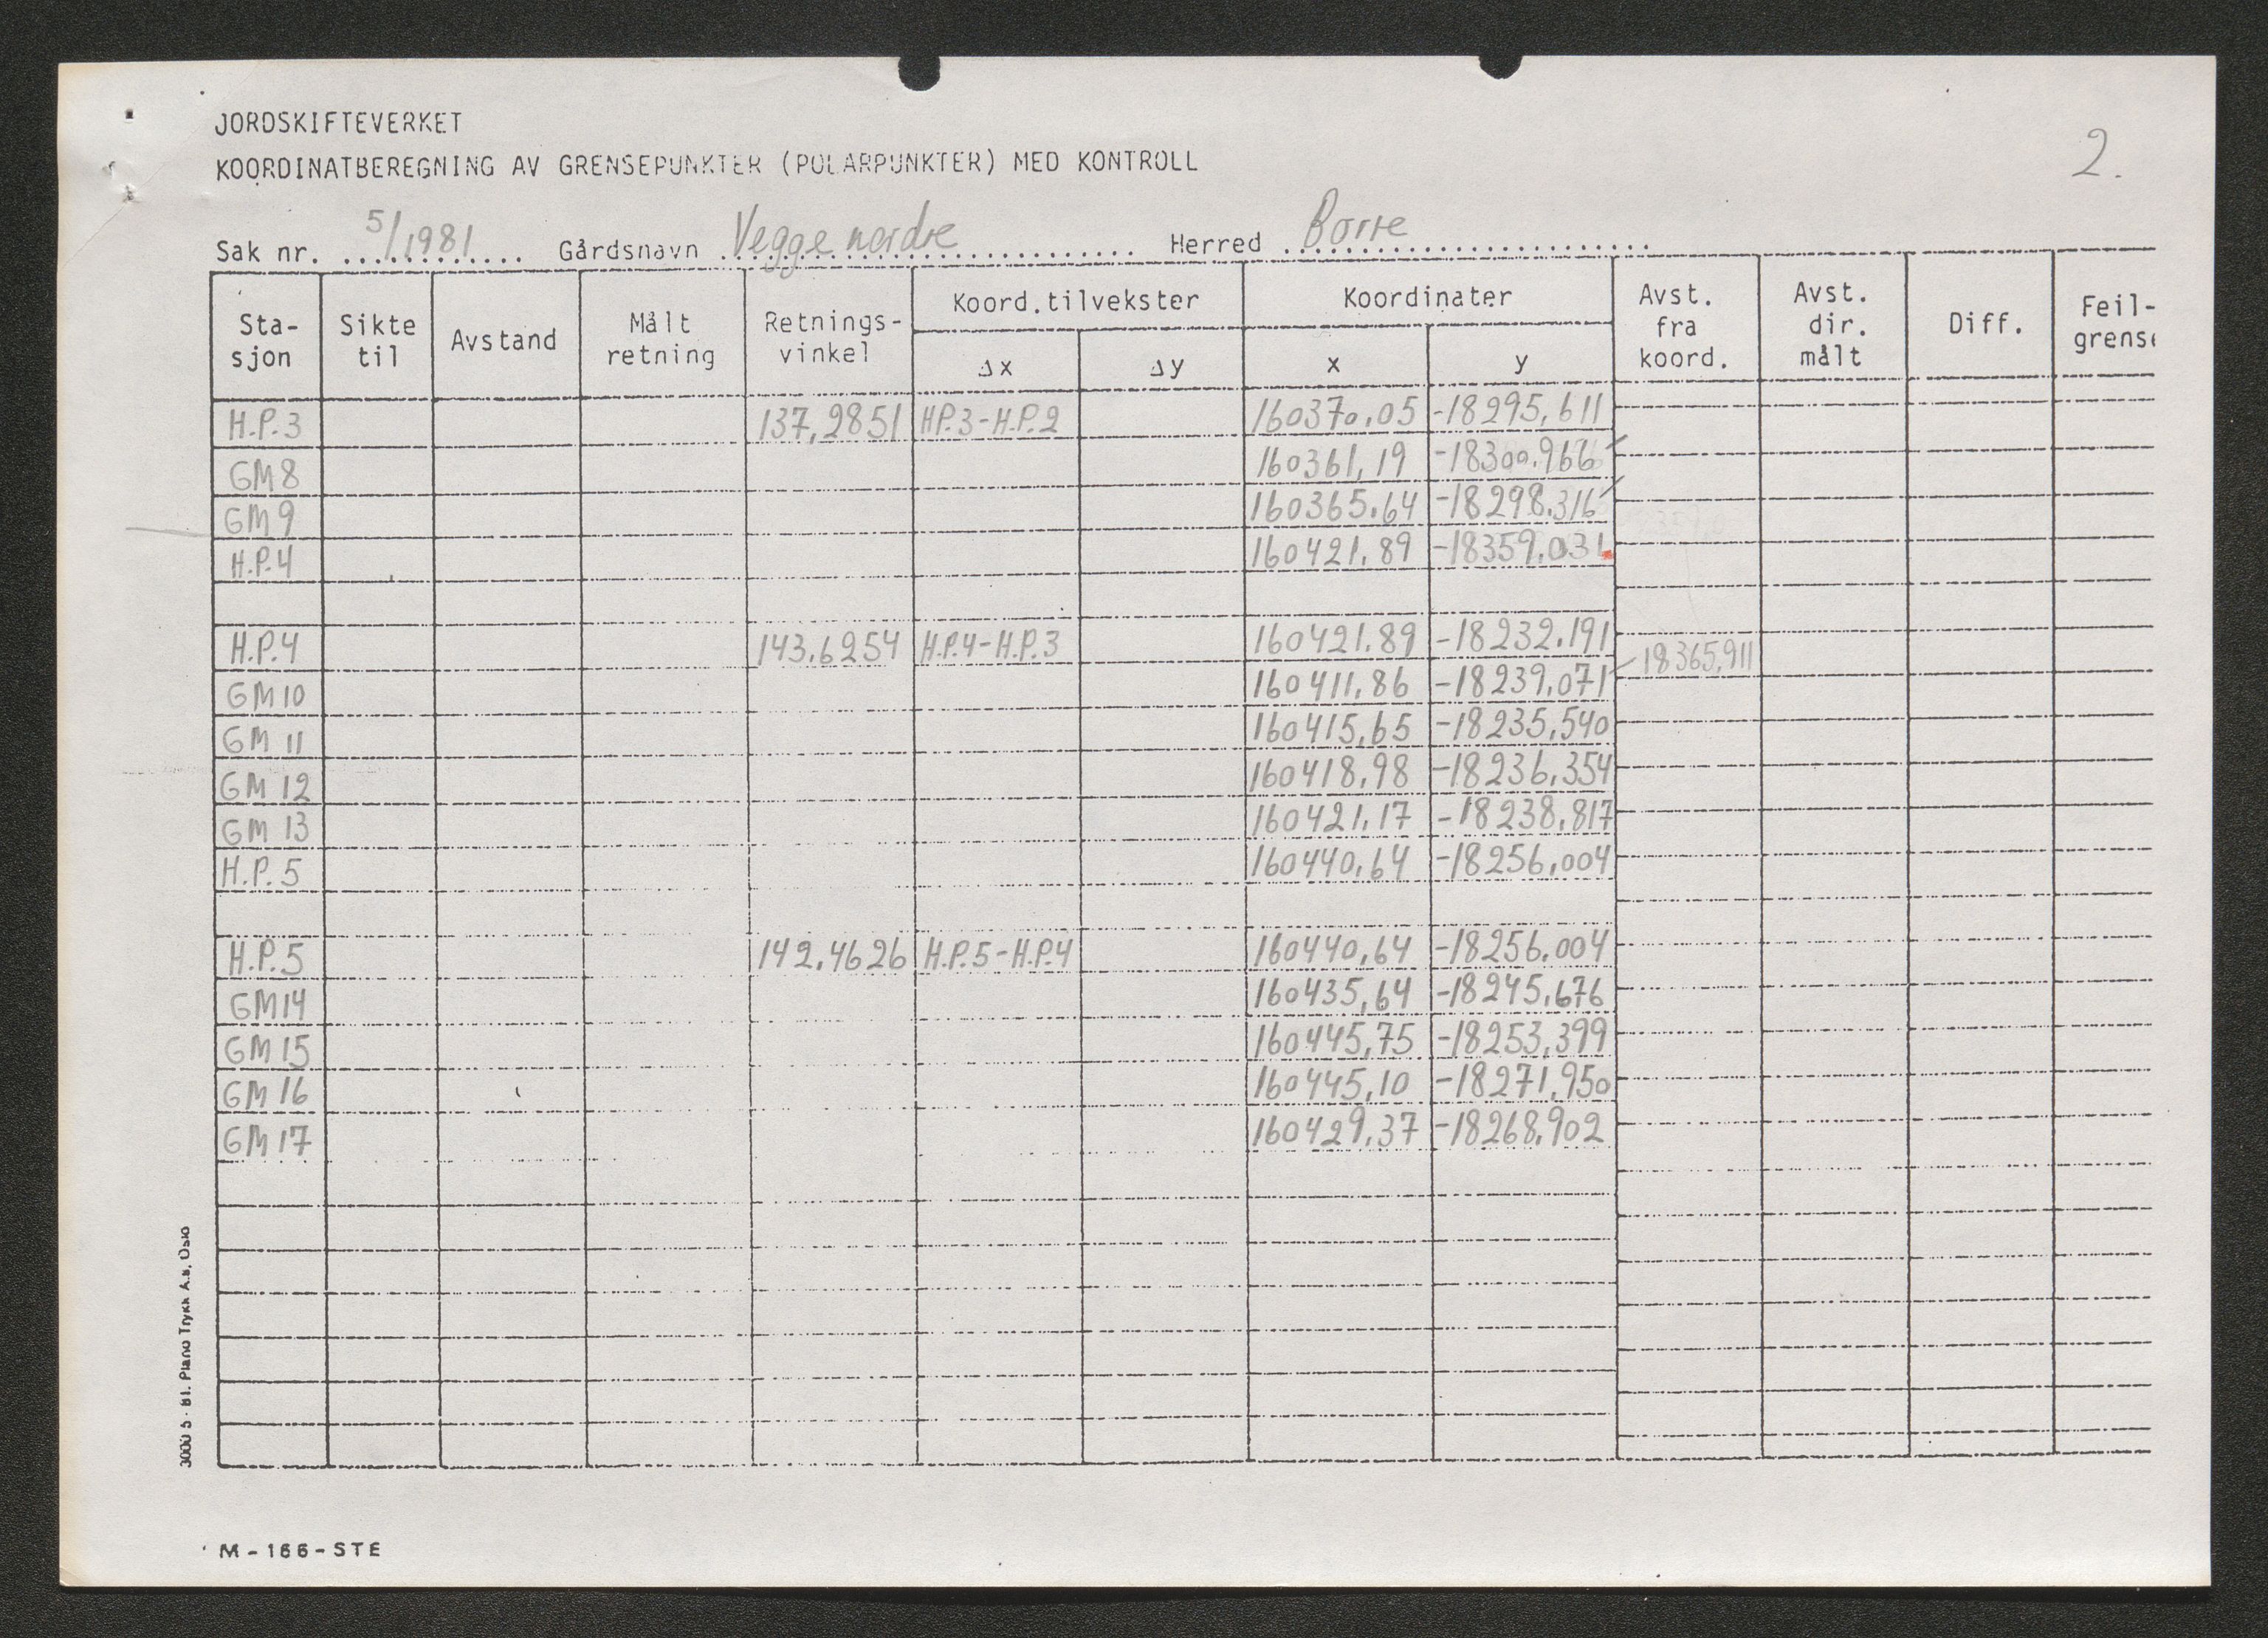 JORDSKIFTEVERKET
KOORDINATBEREGNING AV GRENSEPUNKTER (POLARPUNKTER) MED KONTROLL
2.
Sak nr. 5/1981 Gårdsnavn Vegge nordre Herred Borre
Sta-sjon Sikte til Avstand Målt retning Retnings-vinkel Koord.tilvekster Δx Δy Koordinater x y Avst. fra koord. Avst. dir. målt Diff. Feil-grense
H.P.3 137,2851 HP.3-H.P.2 160370,05 -18295,611
GM8 160361,19 -18300.966
GM9 160365.64 -18298.316
H.P.4 160421.89 -18359.031
H.P.4 143.6254 H.P.4-H.P.3 160421.89 -18232.191
GM10 160411,86 -18239,071 -18365,911
GM 11 160415,65 -18235,540
GM 12 160418,98 -18236,354
GM 13 160421,17 -18238,817
H.P.5 160440,64 -18256,004
H.P.5 142,4626 H.P.5-H.P.4 160440,64 -18256.004
GM14 160435,64 -18245,676
GM 15 160445,75 -18253,399
GM 16 160445,10 -18271,950
GM 17 160429,37 -18268,902
3000 5 · 81. Plano Trykk A.s, Oslo
M-166-STE